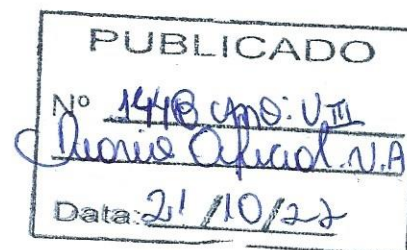 PUBLICADO
Nº 1448 Ano: VIII
Diario Oficial. V.A
Data: 21 /10/22